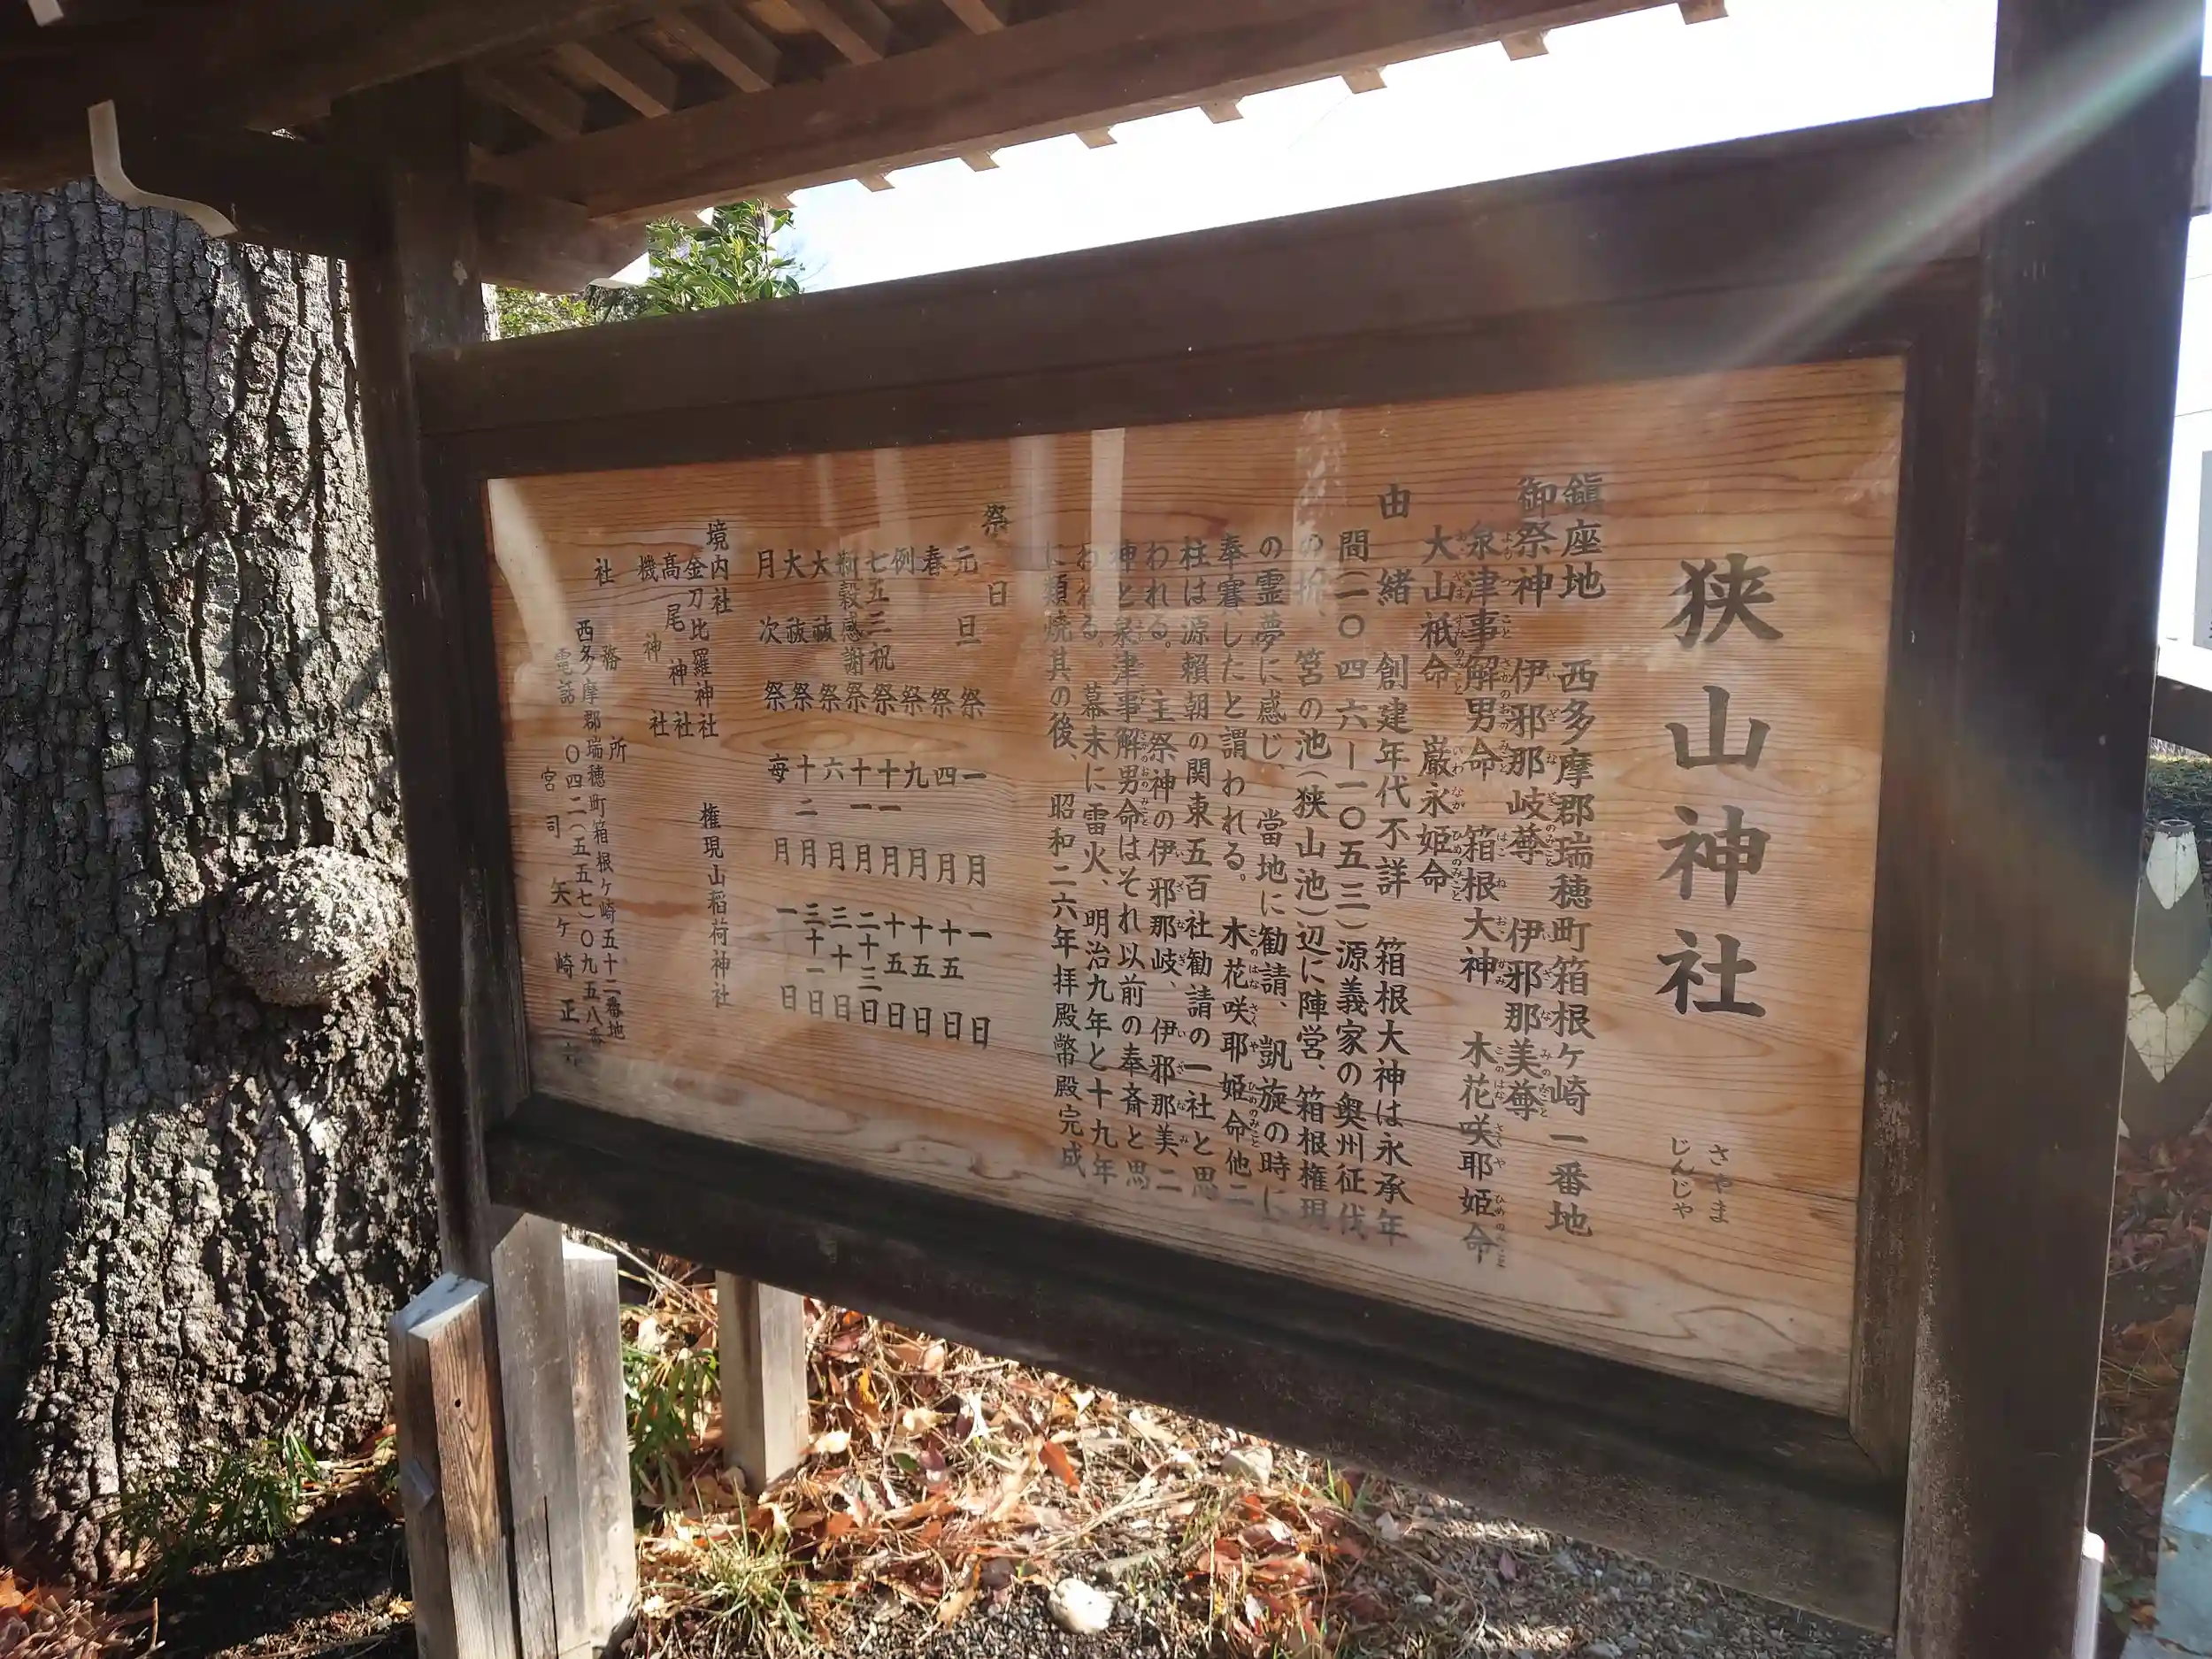 狭山神社
さやま
じんじゃ
鎮座地 西多摩郡瑞穂町箱根ヶ崎一番地
御祭神 伊邪那岐尊 伊邪那美尊
泉津事解男命 箱根大神 木花咲耶姫命
大山祇命 巌永姫命
由緒 創建年代不詳 箱根大神は永承年
間(一〇四六ー一〇五三)源義家の奥州征伐
の折、筥の池(狭山池)辺に陣営、箱根権現
の霊夢に感じ、當地に勧請、凱旋の時に
奉賽したと謂われる。木花咲耶姫命他二
柱は源頼朝の関東五百社勧請の一社と思
われる。主祭神の伊邪那岐、伊邪那美二
神と泉津事解男命はそれ以前の奉斎と思
われる。幕末に雷火、明治九年と十九年
に類焼其の後、昭和二六年拝殿幣殿完成
祭日
元旦祭 一月一日
春祭 四月十五日
例祭 九月十五日
七五三祝祭 十一月十五日
新穀感謝祭 十一月二十三日
大祓祭 六月三十日
大祓祭 十二月三十一日
月次祭 毎月一日
境内社
金刀比羅神社 権現山稲荷神社
高尾神社
機神社
社務所
西多摩郡瑞穂町箱根ヶ崎五十二番地
電話 〇四二(五五七)〇九五八番
宮司 矢ヶ崎正